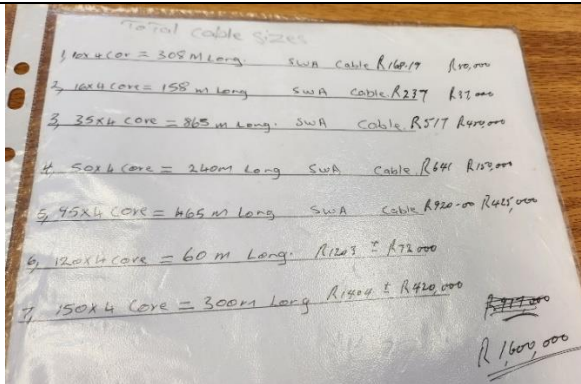 Total cable sizes
1, 10x4 Cor = 308 M Long. SWA Cable R168.19 R50,000
2, 16x4 Core = 158 m Long SWA Cable. R237 R37,000
3, 35x4 Core = 865 m Long. SWA Cable. R517 R450,000
4, 50x4 Core = 240m Long SWA Cable. R641 R153,000
5, 95x4 Core = 465 m Long SWA Cable R920-00 R425,000
6, 120x4 Core = 60 m Long. R1203 ± R72 000
7, 150x4 Core = 300m Long R1404 ± R420,000
R1600,000